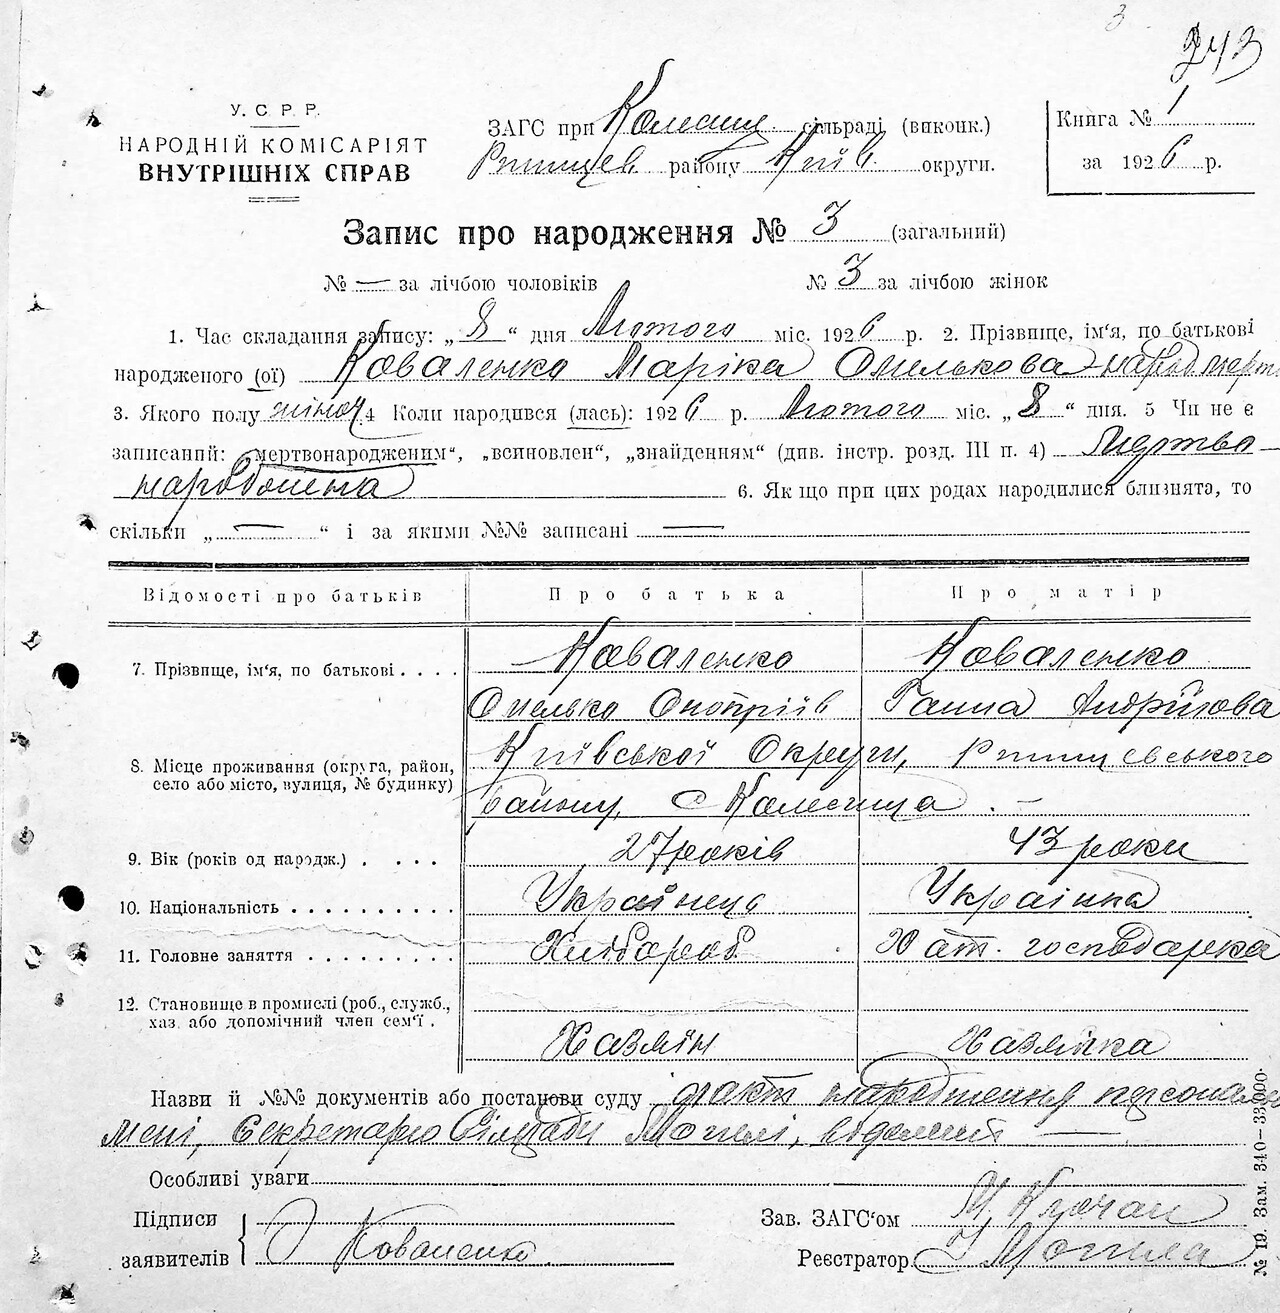 3
243
У. С. Р. Р.
НАРОДНІЙ КОМІСАРІЯТ
ВНУТРІШНІХ СПРАВ
ЗАГС при сільраді (виконк.)
району Київ. округи.
Книга № 1
за 1926 р.
Запис про народження № 3 (загальний)
№ — за лічбою чоловіків № 3 за лічбою жінок
1. Час складання запису: „ 8 “ дня Лютого міс. 1926 р. 2. Прізвище, ім'я, по батькові
народженого (ої) Коваленко Маріка Омелькова - народ. мерт
3. Якого полу жіноч. 4 Коли народився (лась): 1926 р. Лютого міс. „ 8 “ дня. 5 Чи не є
записаний: „мертвонародженим“, „всиновлен“, „знайденням“ (див. інстр. розд. III п. 4) Мертво-
народжена 6. Якщо при цих родах народилися близнята, то
скільки „ — “ і за якими №№ записані —
Відомості про батьків Про батька Про матір
7. Прізвище, ім'я, по батькові . . . . Коваленко Коваленко
Омелько Онопріїв Ганна Андріїова
8. Місце проживання (округа, район, село або місто, вулиця, № будинку) Київської Округи,
району, с
9. Вік (років од народж.) . . . . 27 років 43 роки
10. Національність . . . . . . . . . . Українець Українка
11. Головне заняття . . . . . . . . . Хлібороб. Хат. господарка
12. Становище в промислі (роб., служб.,
хаз. або допомічний член сем'ї . Хазяїн Хазяйка
Назви й №№ документів або постанови суду факт народження персонально
мені, Секретарю Сільради Могилі, відомий —
Особливі уваги
Підписи
заявителів Коваленко
Зав. ЗАГС'ом М. Ключан
Реєстратор Могила
№ 19. Зам. 340—33,000.